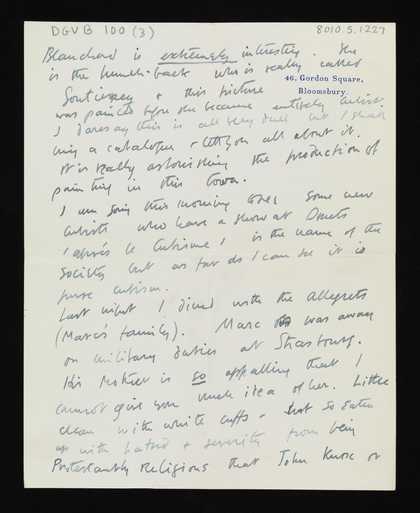 DGVB 100 (3)
8010.5.1227
Blanchard is extremely interesting. She
is the hunch-back who is really called
46, Gordon Square,
Bloomsbury.
& this picture
was painted before she became entirely Cubist.
I daresay this is all very dull but I shall
bring a catalogue & tell you all about it.
It is really astonishing the production of
painting in this town.
I am going this morning to see some new
Cubists who have a show at Druets
'après le Cubisme' is the name of the
Society but as far as I can see it is
pure cubism.
Last night I dined with the Allegrets
(Marc's family). Marc was away
on military duties at Strasbourg.
His Mother is so appalling that I
cannot give you much idea of her. Little
clean with white cuffs & but so eaten
up with hatred & severity from being
Protestantly Religious that John Knox or